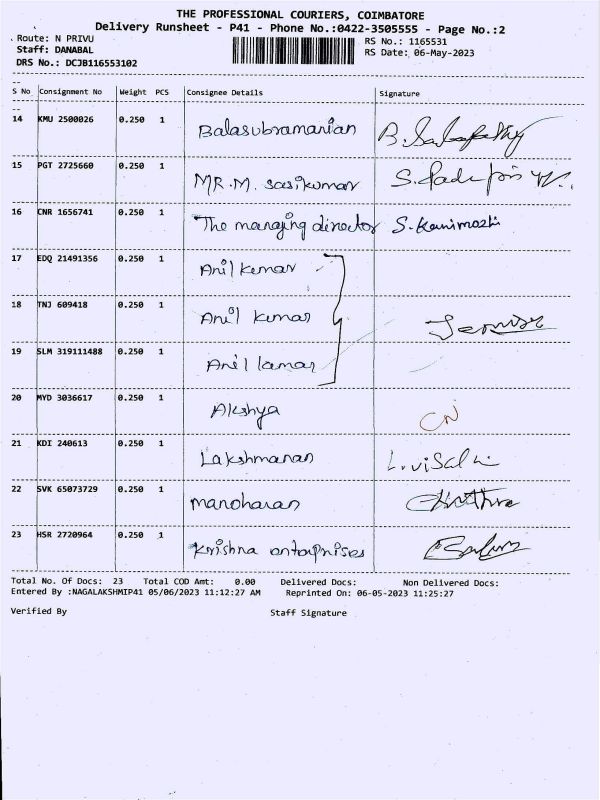 THE PROFESSIONAL COURIERS, COIMBATORE
Delivery Runsheet - P41 - Phone No.:0422-3505555 - Page No.:2
Route: N PRIVU RS No.: 1165531
Staff: DANABAL RS Date: 06-May-2023
DRS No.: DCJB116553102
S No Consignment No Weight PCS Consignee Details Signature
14 KMU 2500026 0.250 1 Balasubramanian
15 PGT 2725660 0.250 1 MR.M. sasikumar
16 CNR 1656741 0.250 1 The managing director S. Kanimozhi
17 EDQ 21491356 0.250 1 Anil kumar
18 TNJ 609418 0.250 1 Anil kumar
19 SLM 319111488 0.250 1 Anil kumar
20 MYD 3036617 0.250 1 Akshya CN
21 KDI 240613 0.250 1 Lakshmanan L. viSal
22 SVK 65073729 0.250 1 manoharan
23 HSR 2720964 0.250 1 Krishna entarprises
Total No. Of Docs: 23 Total COD Amt: 0.00 Delivered Docs: Non Delivered Docs:
Entered By :NAGALAKSHMIP41 05/06/2023 11:12:27 AM Reprinted On: 06-05-2023 11:25:27
Verified By Staff Signature